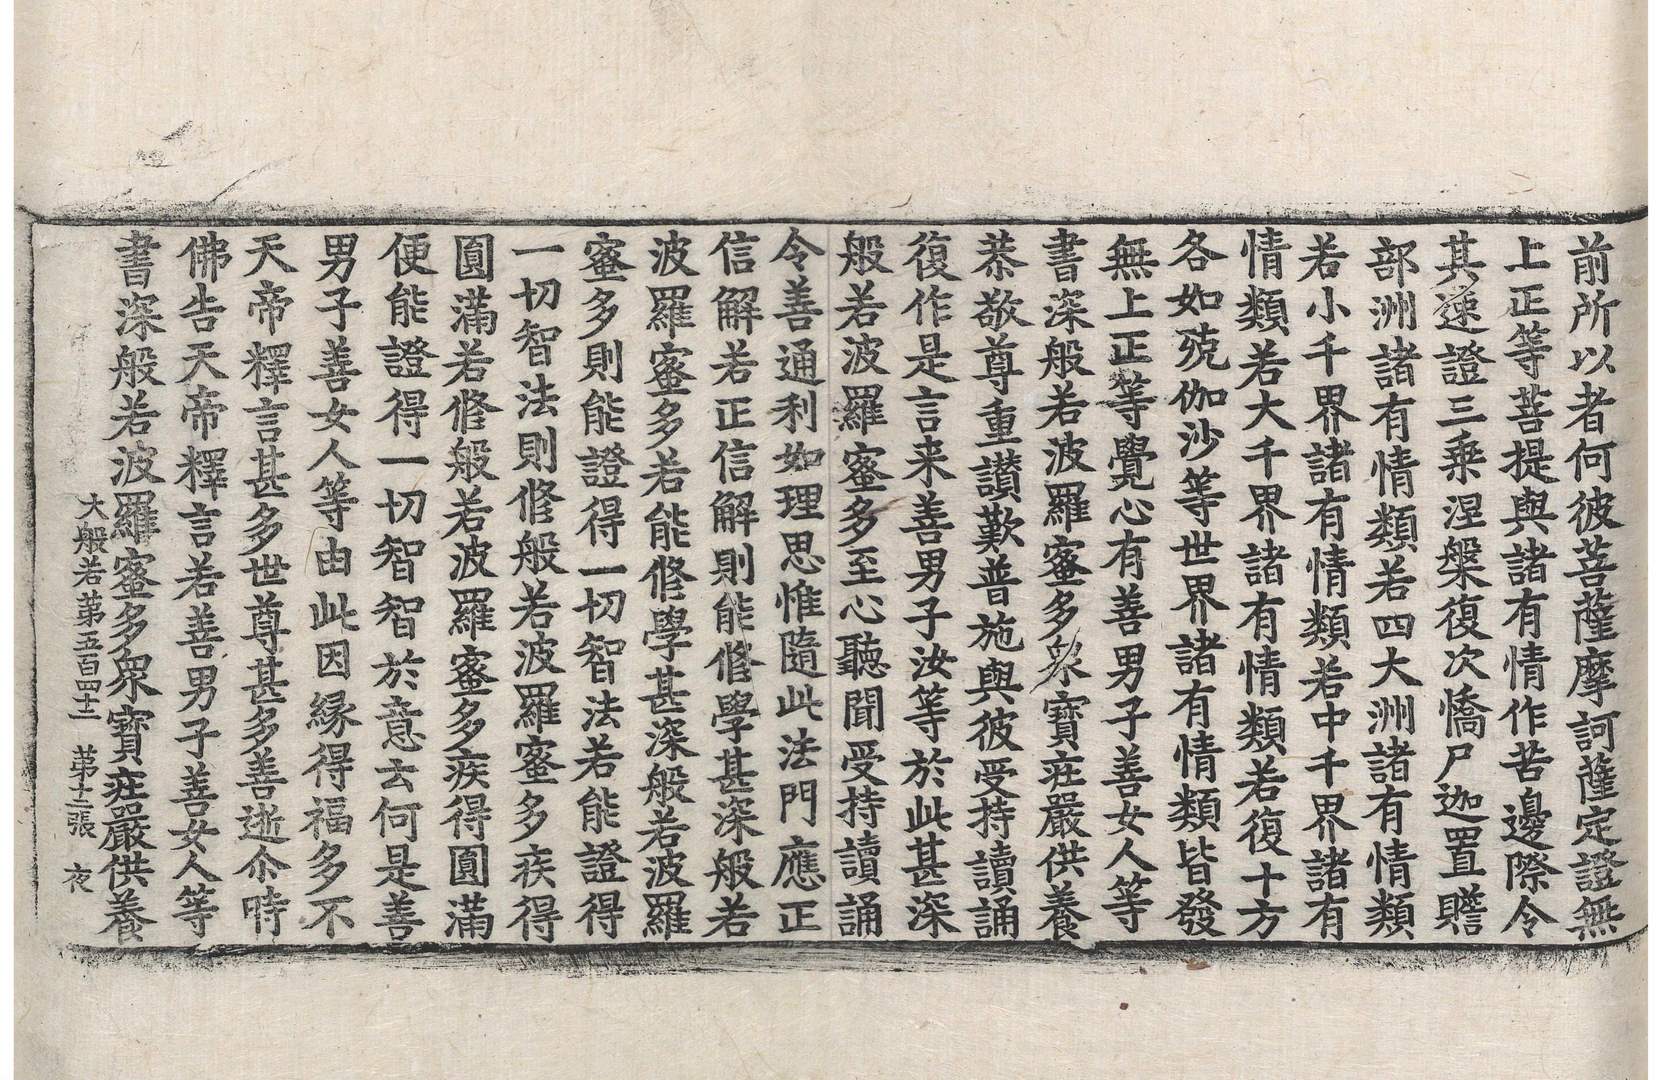 前所以者何彼菩薩摩訶薩定證無
上正等菩提與諸有情作苦邊際令
其速證三乗涅槃復次憍尸迦置贍
部洲諸有情類若四大洲諸有情類
若小千界諸有情類若中千界諸有
情類若大千界諸有情類若復十方
各如殑伽沙等世界諸有情類皆發
無上正等覺心有善男子善女人等
書深般若波羅蜜多衆寶莊嚴供養
恭敬尊重讃歎普施與彼受持讀誦
復作是言来善男子汝等於此甚深
般若波羅蜜多至心聽聞受持讀誦
令善通利如理思惟隨此法門應正
信解若正信解則能修學甚深般若
波羅蜜多若能修學甚深般若波羅
蜜多則能證得一切智法若能證得
一切智法則修般若波羅蜜多疾得
圓滿若修般若波羅蜜多疾得圓滿
便能證得一切智智於意云何是善
男子善女人等由此因縁得福多不
天帝釋言甚多世尊甚多善逝尒時
佛告天帝釋言若善男子善女人等
書深般若波羅蜜多衆寶莊嚴供養
大般若第五百四十二　第十二張　夜